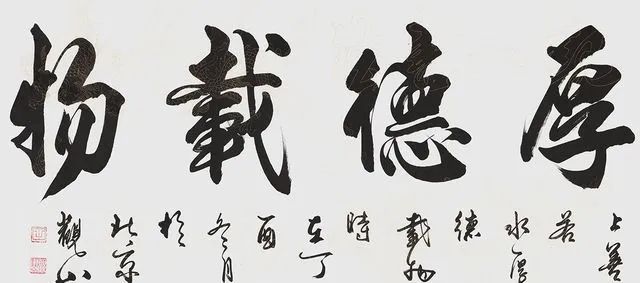 厚德載物
上善
若
水厚
德
載物
時
在丁
酉
冬月
於
北京
觀山